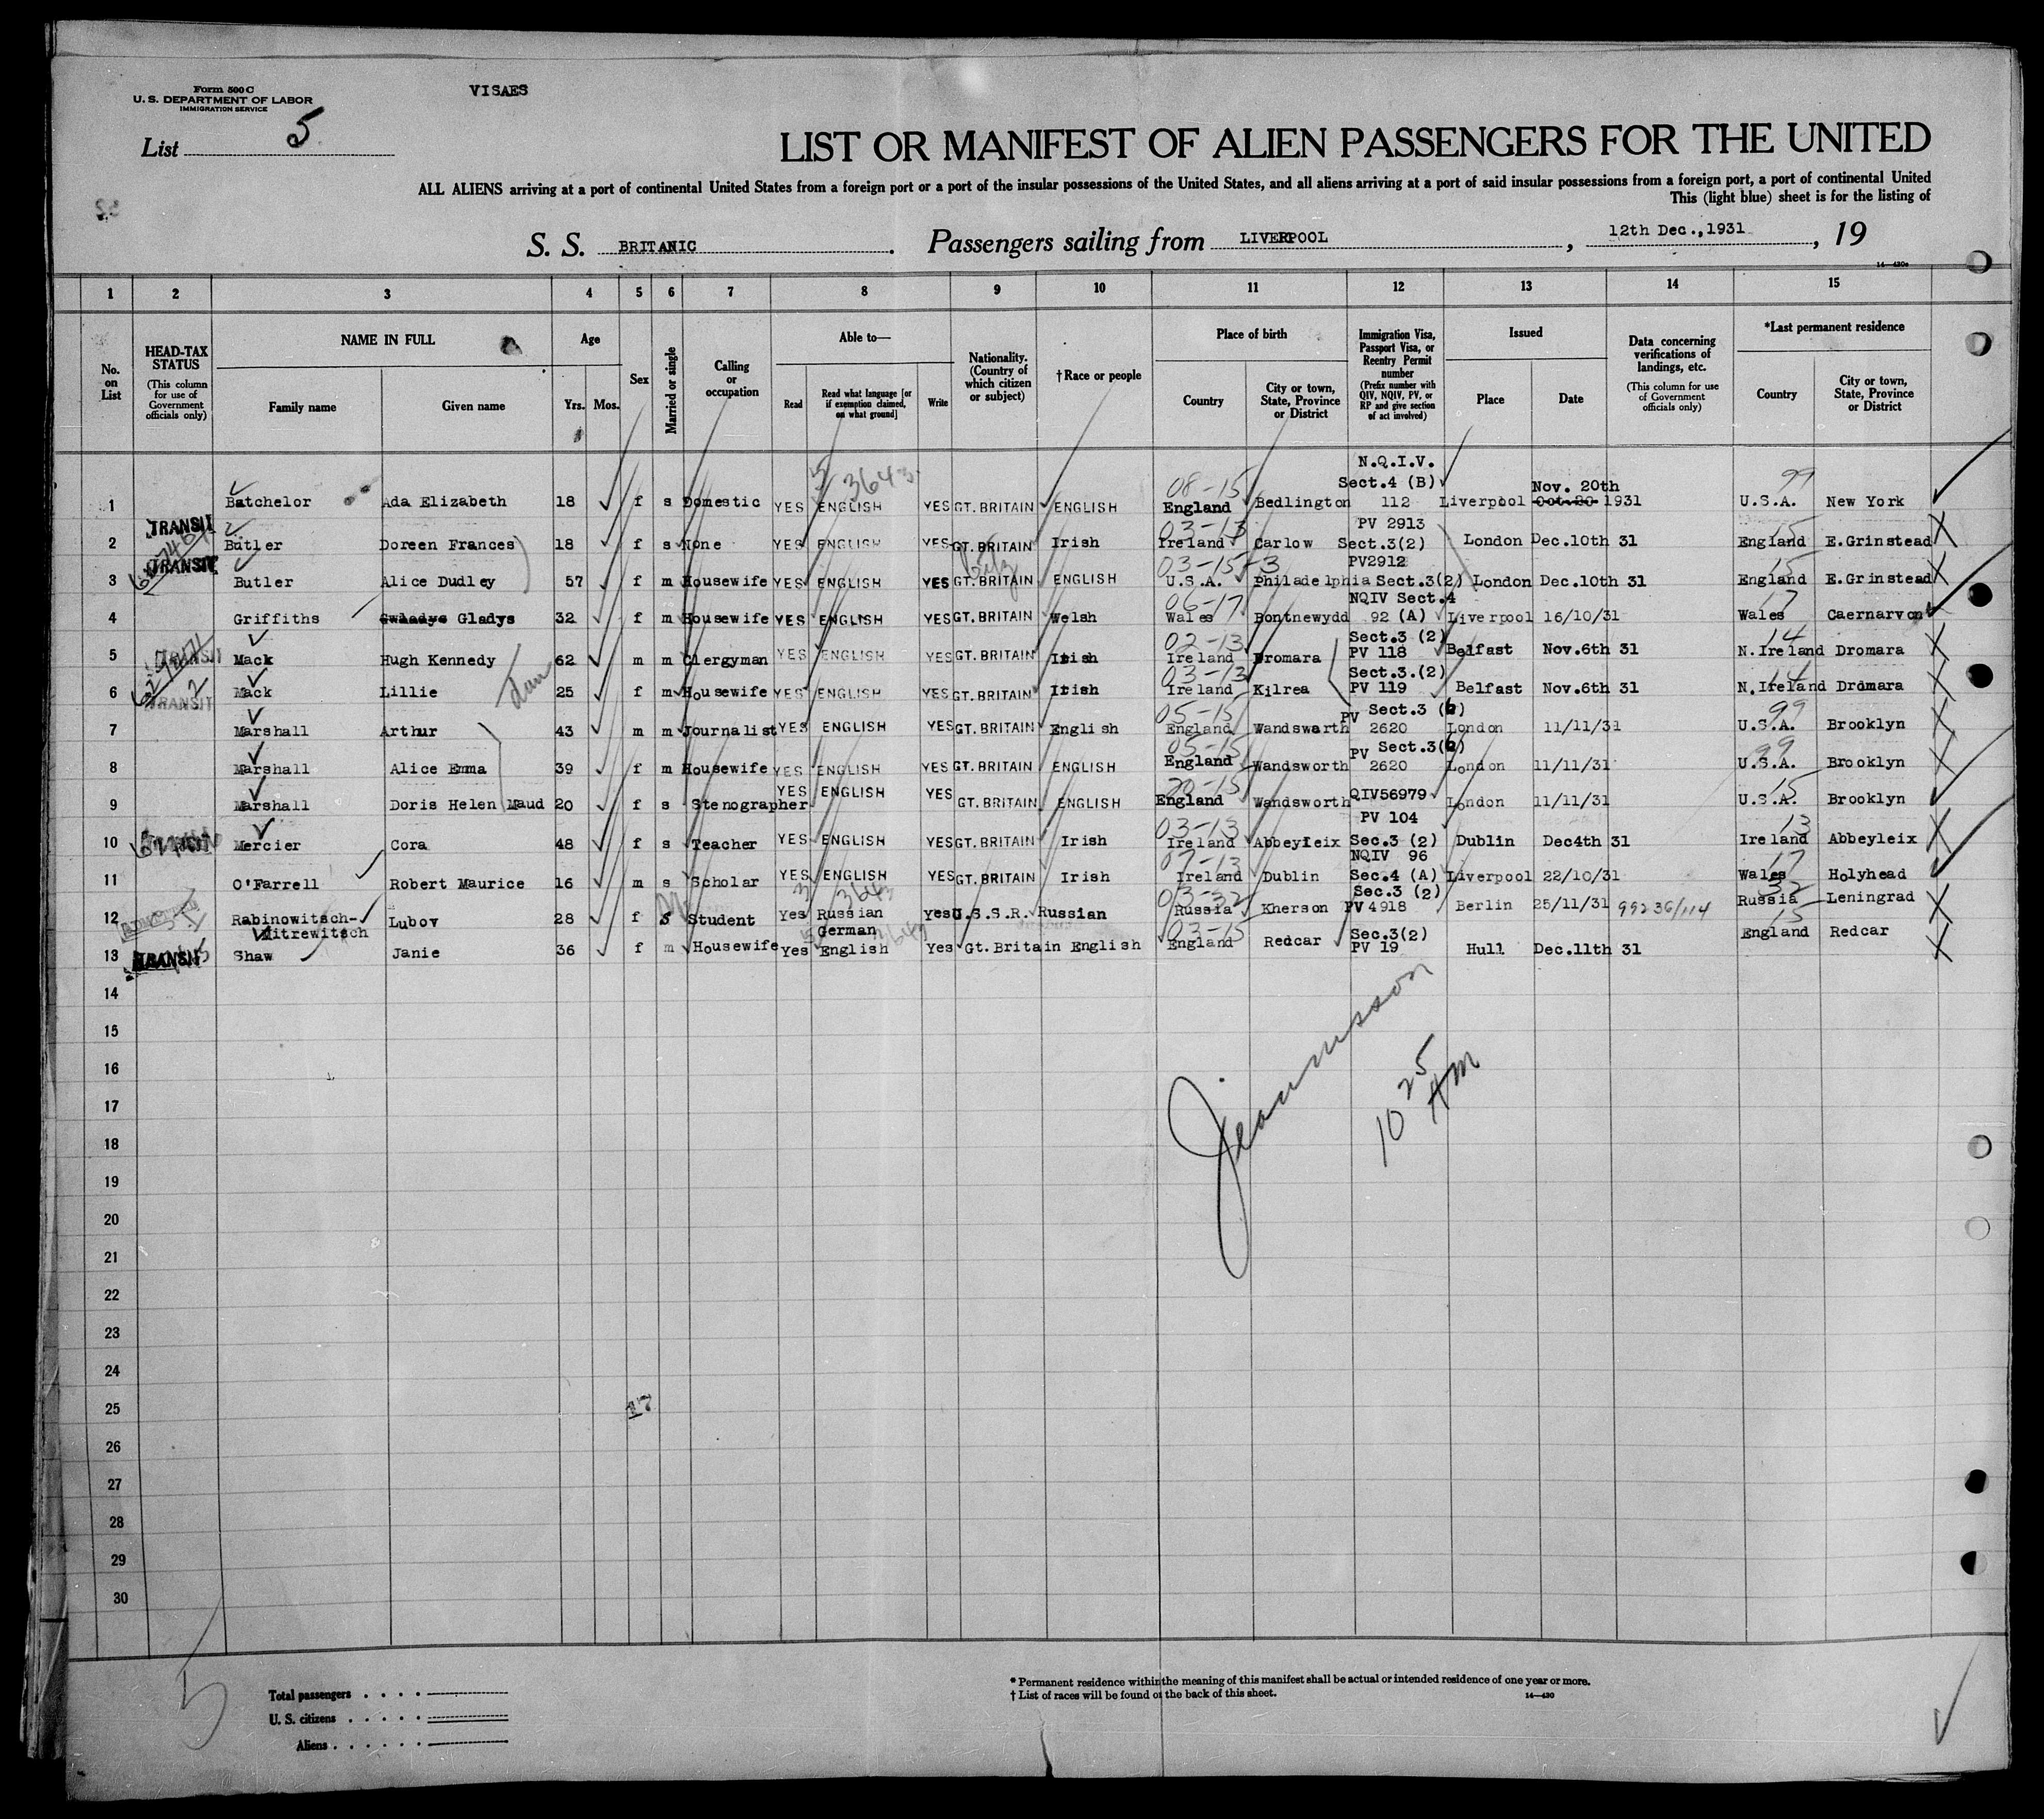 Form 500 C
U. S. DEPARTMENT OF LABOR
IMMIGRATION SERVICE
VISAES
List 5
LIST OR MANIFEST OF ALIEN PASSENGERS FOR THE UNITED
ALL ALIENS arriving at a port of continental United States from a foreign port or a port of the insular possessions of the United States, and all aliens arriving at a port of said insular possessions from a foreign port, a port of continental United
This (light blue) sheet is for the listing of
S. S. BRITANIC. Passengers sailing from LIVERPOOL, 12th Dec.,1931, 19
14—430a
1 2 3 4 5 6 7 8 9 10 11 12 13 14 15
No. on List
HEAD-TAX STATUS (This column for use of Government officials only)
NAME IN FULL
Family name Given name
Age
Yrs. Mos.
Sex
Married or single
Calling or occupation
Able to—
Read Read what language [or if exemption claimed, on what ground] Write
Nationality. (Country of which citizen or subject)
† Race or people
Place of birth
Country City or town, State, Province or District
Immigration Visa, Passport Visa, or Reentry Permit number (Prefix number with QIV, NQIV, PV, or RP and give section of act involved)
Issued
Place Date
Data concerning verifications of landings, etc. (This column for use of Government officials only)
*Last permanent residence
Country City or town, State, Province or District
5 3643 08-15 N.Q.I.V. Sect.4 (B) Nov. 20th 99
1 Batchelor Ada Elizabeth 18 f s Domestic YES ENGLISH YES GT. BRITAIN ENGLISH England Bedlington 112 Liverpool Oct.20 1931 U.S.A. New York
TRANSIT 03-13 PV 2913 15
2 Butler Doreen Frances 18 f s None YES ENGLISH YES GT. BRITAIN Irish Ireland Carlow Sect.3(2) London Dec.10th 31 England E.Grinstead
TRANSIT 03-15-3 PV2912 15
3 Butler Alice Dudley 57 f m Housewife YES ENGLISH YES GT. BRITAIN ENGLISH U.S.A. Philadelphia Sect.3(2) London Dec.10th 31 England E.Grinstead
06-17 NQIV Sect.4 17
4 Griffiths Gwladys Gladys 32 f m Housewife YES ENGLISH YES GT. BRITAIN Welsh Wales Bontnewydd 92 (A) Liverpool 16/10/31 Wales Caernarvon
TRANSIT 02-13 Sect.3 (2) 14
5 Mack Hugh Kennedy 62 m m Clergyman YES ENGLISH YES GT. BRITAIN Irish Ireland Dromara PV 118 Belfast Nov.6th 31 N.Ireland Dromara
2 TRANSIT 03-13 Sect.3.(2) 14
6 Mack Lillie 25 f m Housewife YES ENGLISH YES GT. BRITAIN Irish Ireland Kilrea PV 119 Belfast Nov.6th 31 N.Ireland Dromara
05-15 PV Sect.3 (6) 99
7 Marshall Arthur 43 m m Journalist YES ENGLISH YES GT. BRITAIN English England Wandsworth 2620 London 11/11/31 U.S.A. Brooklyn
05-15 PV Sect.3(6) 99
8 Marshall Alice Emma 39 f m Housewife YES ENGLISH YES GT. BRITAIN ENGLISH England Wandsworth 2620 London 11/11/31 U.S.A. Brooklyn
20-15 15
9 Marshall Doris Helen Maud 20 f s Stenographer YES ENGLISH YES GT. BRITAIN ENGLISH England Wandsworth QIV56979 London 11/11/31 U.S.A. Brooklyn
03-13 PV 104 13
10 Mercier Cora 48 f s Teacher YES ENGLISH YES GT. BRITAIN Irish Ireland Abbeyleix Sec.3 (2) Dublin Dec4th 31 Ireland Abbeyleix
07-13 NQIV 96 17
11 O'Farrell Robert Maurice 16 m s Scholar YES ENGLISH YES GT. BRITAIN Irish Ireland Dublin Sec.4 (A) Liverpool 22/10/31 Wales Holyhead
3 3643 03-32 Sec.3 (2) 32
12 Rabinowitsch- Lubov 28 f s Student Yes Russian Yes U.S.S.R. Russian Russia Kherson PV 4918 Berlin 25/11/31 99236/114 Russia Leningrad
Mitrewitsch German 5 3643 03-15 Sec.3(2) 15
13 TRANSIT Shaw Janie 36 f m Housewife Yes English Yes Gt. Britain English England Redcar PV 19 Hull Dec.11th 31 England Redcar
14
15
16
10 25 AM
17
18
19
20
21
22
23
24
25
17
26
27
28
29
30
5
Total passengers
U. S. citizens
Aliens
* Permanent residence within the meaning of this manifest shall be actual or intended residence of one year or more.
† List of races will be found on the back of this sheet.
14—430